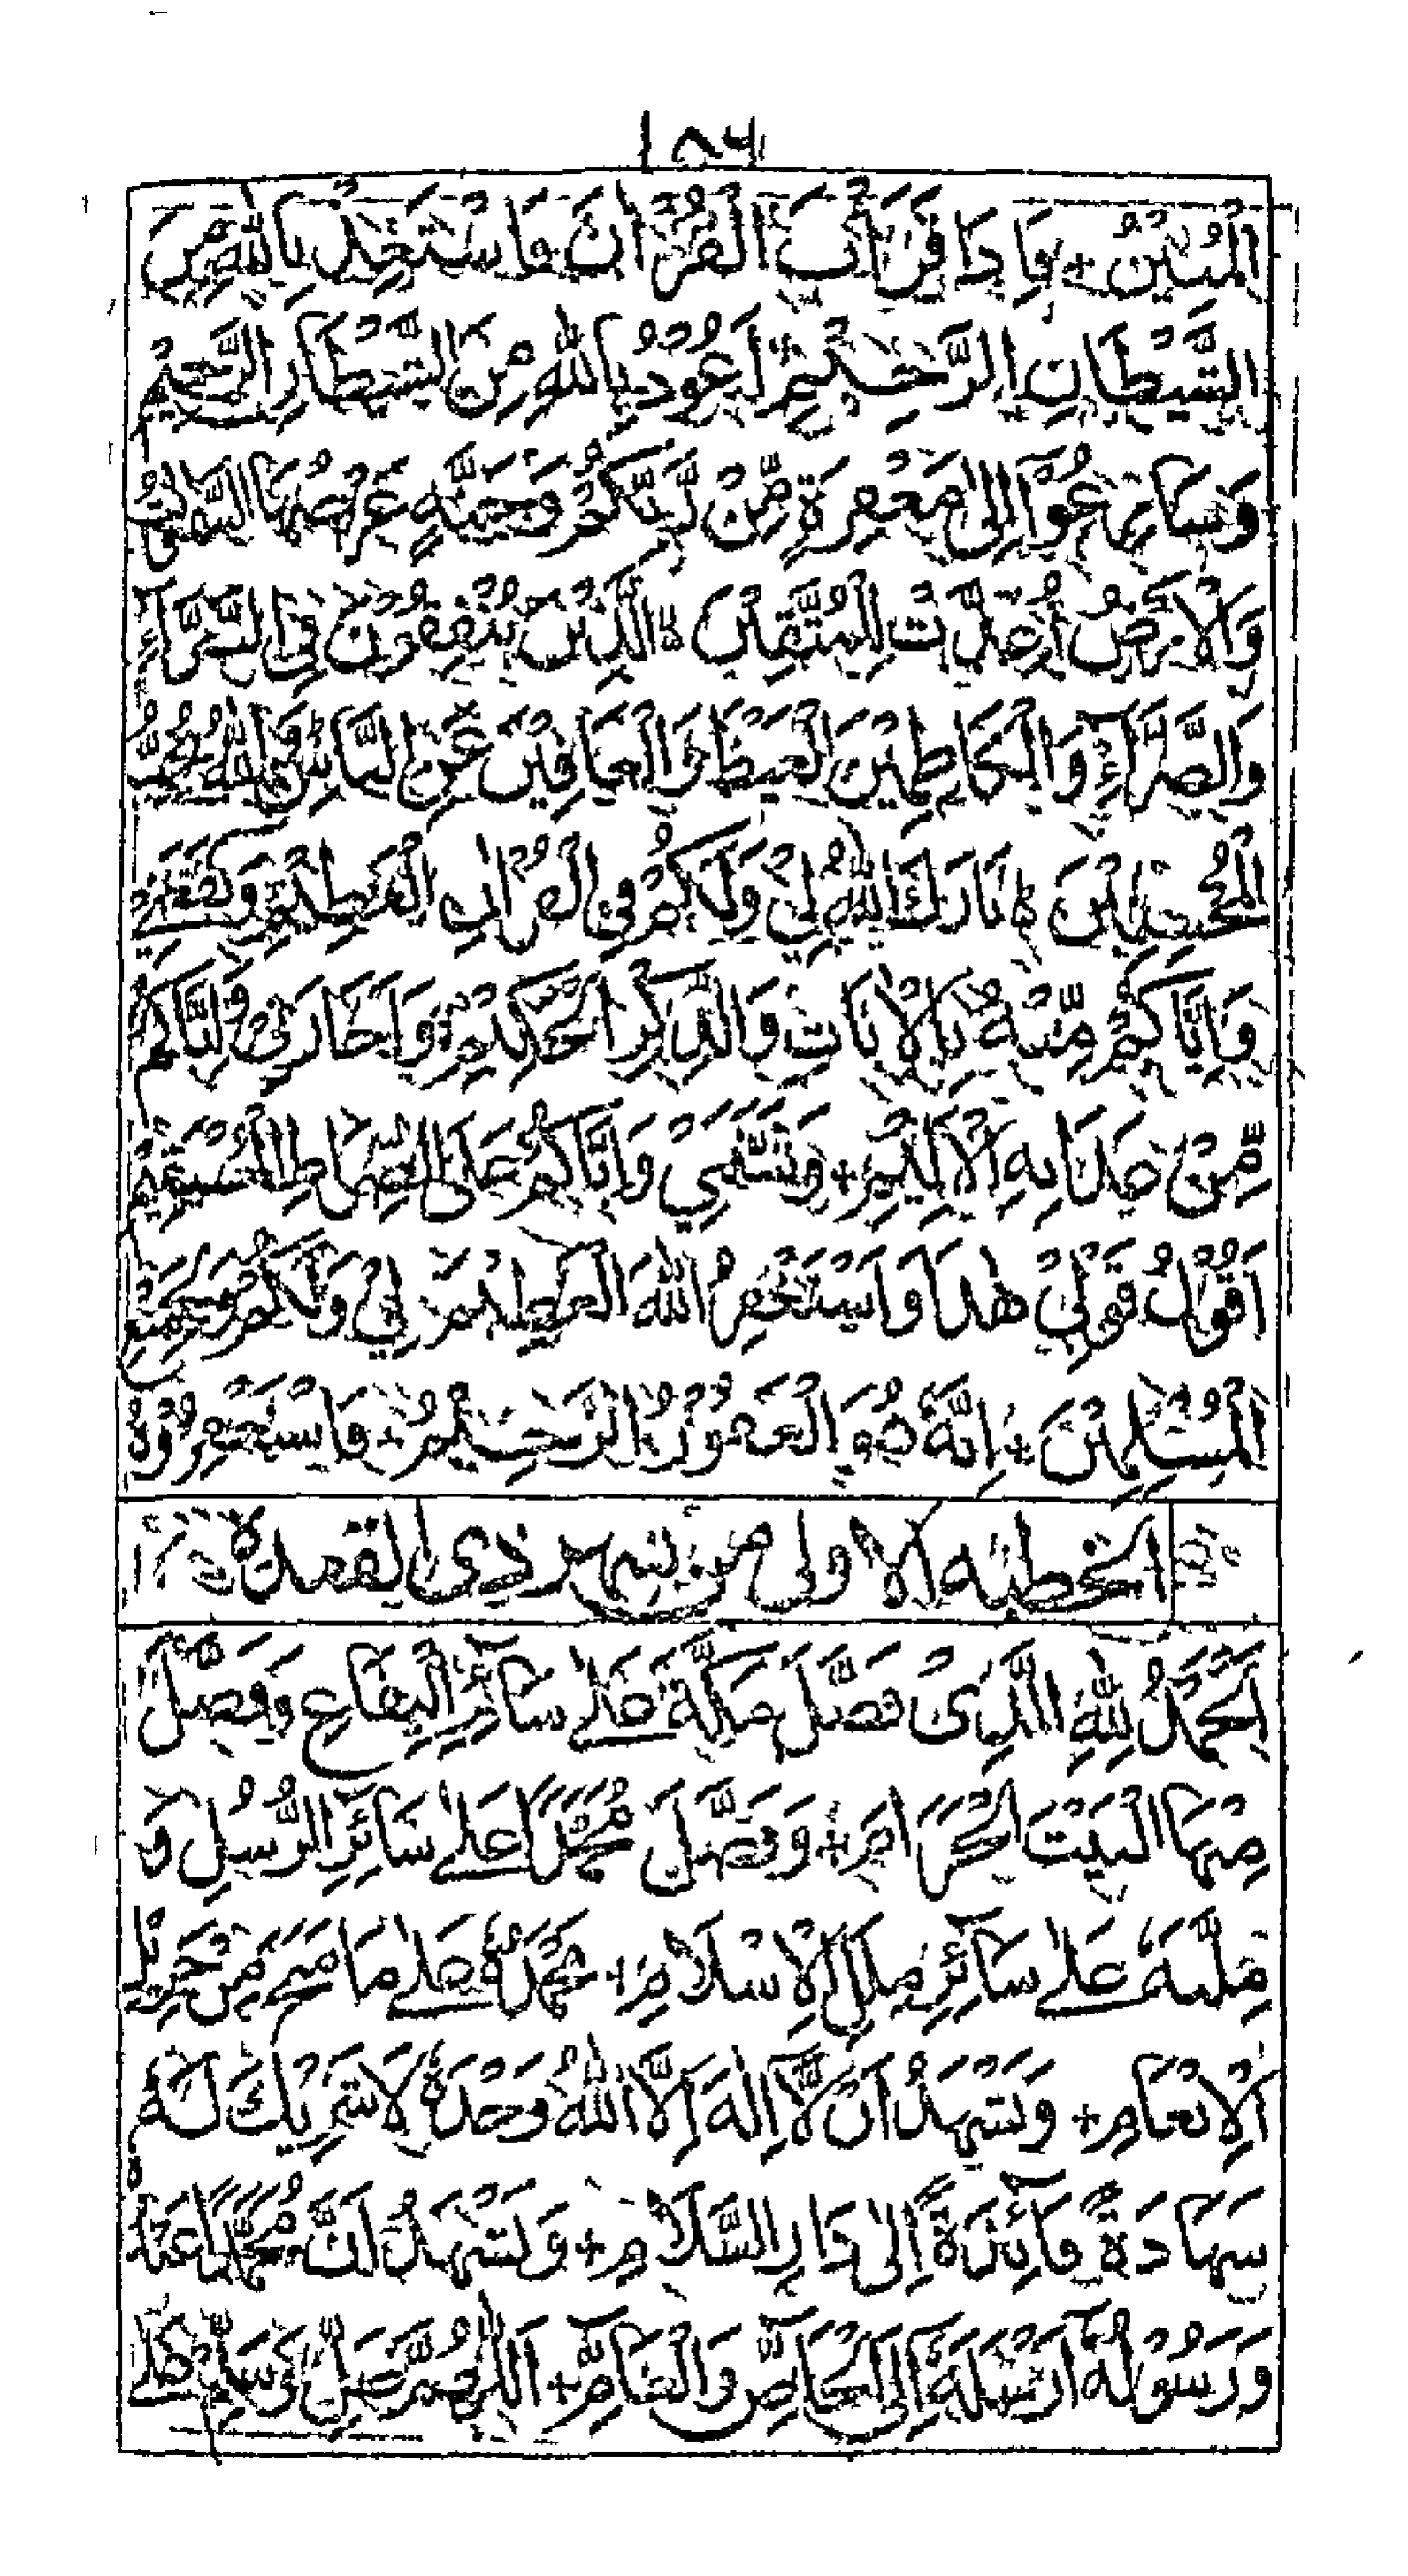 ١٥٦
الْمُبِيْنُ + فَاِذَا قَرَاْتَ الْقُرْاٰنَ فَاسْتَعِذْ بِاللّٰهِ مِنَ
الشَّيْطَانِ الرَّجِيْمِ + اَعُوْذُ بِاللّٰهِ مِنَ الشَّيْطَانِ الرَّجِيْمِ
وَسَارِعُوْٓا اِلٰى مَغْفِرَةٍ مِّنْ رَّبِّكُمْ وَجَنَّةٍ عَرْضُهَا السَّمٰوٰتُ
وَالْاَرْضُ اُعِدَّتْ لِلْمُتَّقِيْنَ ۙ الَّذِيْنَ يُنْفِقُوْنَ فِى السَّرَّآءِ
وَالضَّرَّآءِ وَالْكَاظِمِيْنَ الْغَيْظَ وَالْعَافِيْنَ عَنِ النَّاسِ وَاللّٰهُ يُحِبُّ
الْمُحْسِنِيْنَ ۚ بَارَكَ اللّٰهُ لِيْ وَلَكُمْ فِى الْقُرْاٰنِ الْعَظِيْمِ وَنَفَعَنِيْ
وَاِيَّاكُمْ مِّنْهُ بِالْاٰيَاتِ وَالذِّكْرِ الْحَكِيْمِ + وَاَجَارَنِيْ وَاِيَّاكُمْ
مِّنْ عَذَابِهِ الْاَلِيْمِ + وَثَبَّتَنِيْ وَاِيَّاكُمْ عَلَى الصِّرَاطِ الْمُسْتَقِيْمِ
اَقُوْلُ قَوْلِيْ هٰذَا وَاَسْتَغْفِرُ اللّٰهَ الْعَظِيْمَ لِيْ وَلَكُمْ وَلِجَمِيْعِ
الْمُسْلِمِيْنَ + اِنَّهٗ هُوَ الْغَفُوْرُ الرَّحِيْمُ + فَاسْتَغْفِرُوْهُ
الخطبه الاولى من شهر ذى القعدة
اَلْحَمْدُ لِلّٰهِ الَّذِىْ فَضَّلَ مَكَّةَ عَلٰے سَآئِرِ الْبِقَاعِ وَفَضَّلَ
مِنْهَا الْبَيْتَ الْحَرَامَ + وَفَضَّلَ مُحَمَّدًا عَلٰے سَآئِرِ الرُّسُلِ وَ
مِلَّتَهٗ عَلٰے سَآئِرِ مِلَلِ الْاِسْلَامِ + نَحْمَدُهٗ عَلٰے مَا مَنَحَ مِنْ جَزِيْلِ
الْاِنْعَامِ + وَنَشْهَدُ اَنْ لَّآ اِلٰهَ اِلَّا اللّٰهُ وَحْدَهٗ لَا شَرِيْكَ لَهٗ
شَهَادَةً فَآئِزَةً اِلٰى دَارِ السَّلَامِ + وَنَشْهَدُ اَنَّ مُحَمَّدًا عَبْدُهٗ
وَرَسُوْلُهٗٓ اَرْسَلَهٗٓ اِلَى الْخَاصِّ وَالْعَامِّ + اَللّٰهُمَّ صَلِّ وَسَلِّمْ عَلٰے